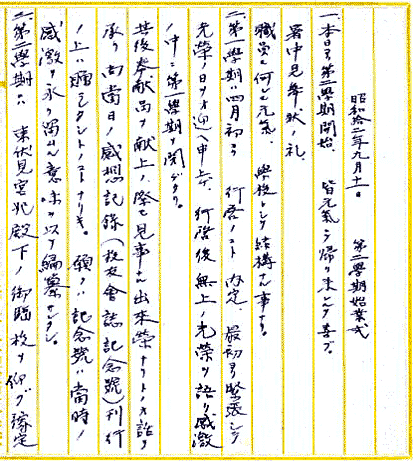 昭和拾二年九月十一日 第二學期始業式
一、本日ヨリ第二學期開始、皆元気ニ帰リ来レルヲ喜ブ。
暑中見舞状ノ礼、
職員モ何レモ元気、 無後トシテ結構ナル事ナリ。
二、第一學期ハ四月初メ 行啓ノコト内定、最初ヨリ緊張シテ
光榮ノ日ヲオ迎ヘ申上ゲ、行啓後無上ノ光榮ヲ語リ感激
ノ中ニ第一學期ヲ閉ヂタリ。
其後奉献品ヲ献上ノ際モ見事ナル出来榮ナリトノオ話ヲ
承リ尚當日ノ感想記録(校友會誌記念號)刊行
ノ上ハ シタシトノコトナリキ。 願クハ記念號ハ當時ノ
感激ヲ永ク濁ル意味ヲ以テ編纂サレタシ。
二、第二學期ハ 東伏見宮妃殿下ノ御臨校ヲ仰グ豫定